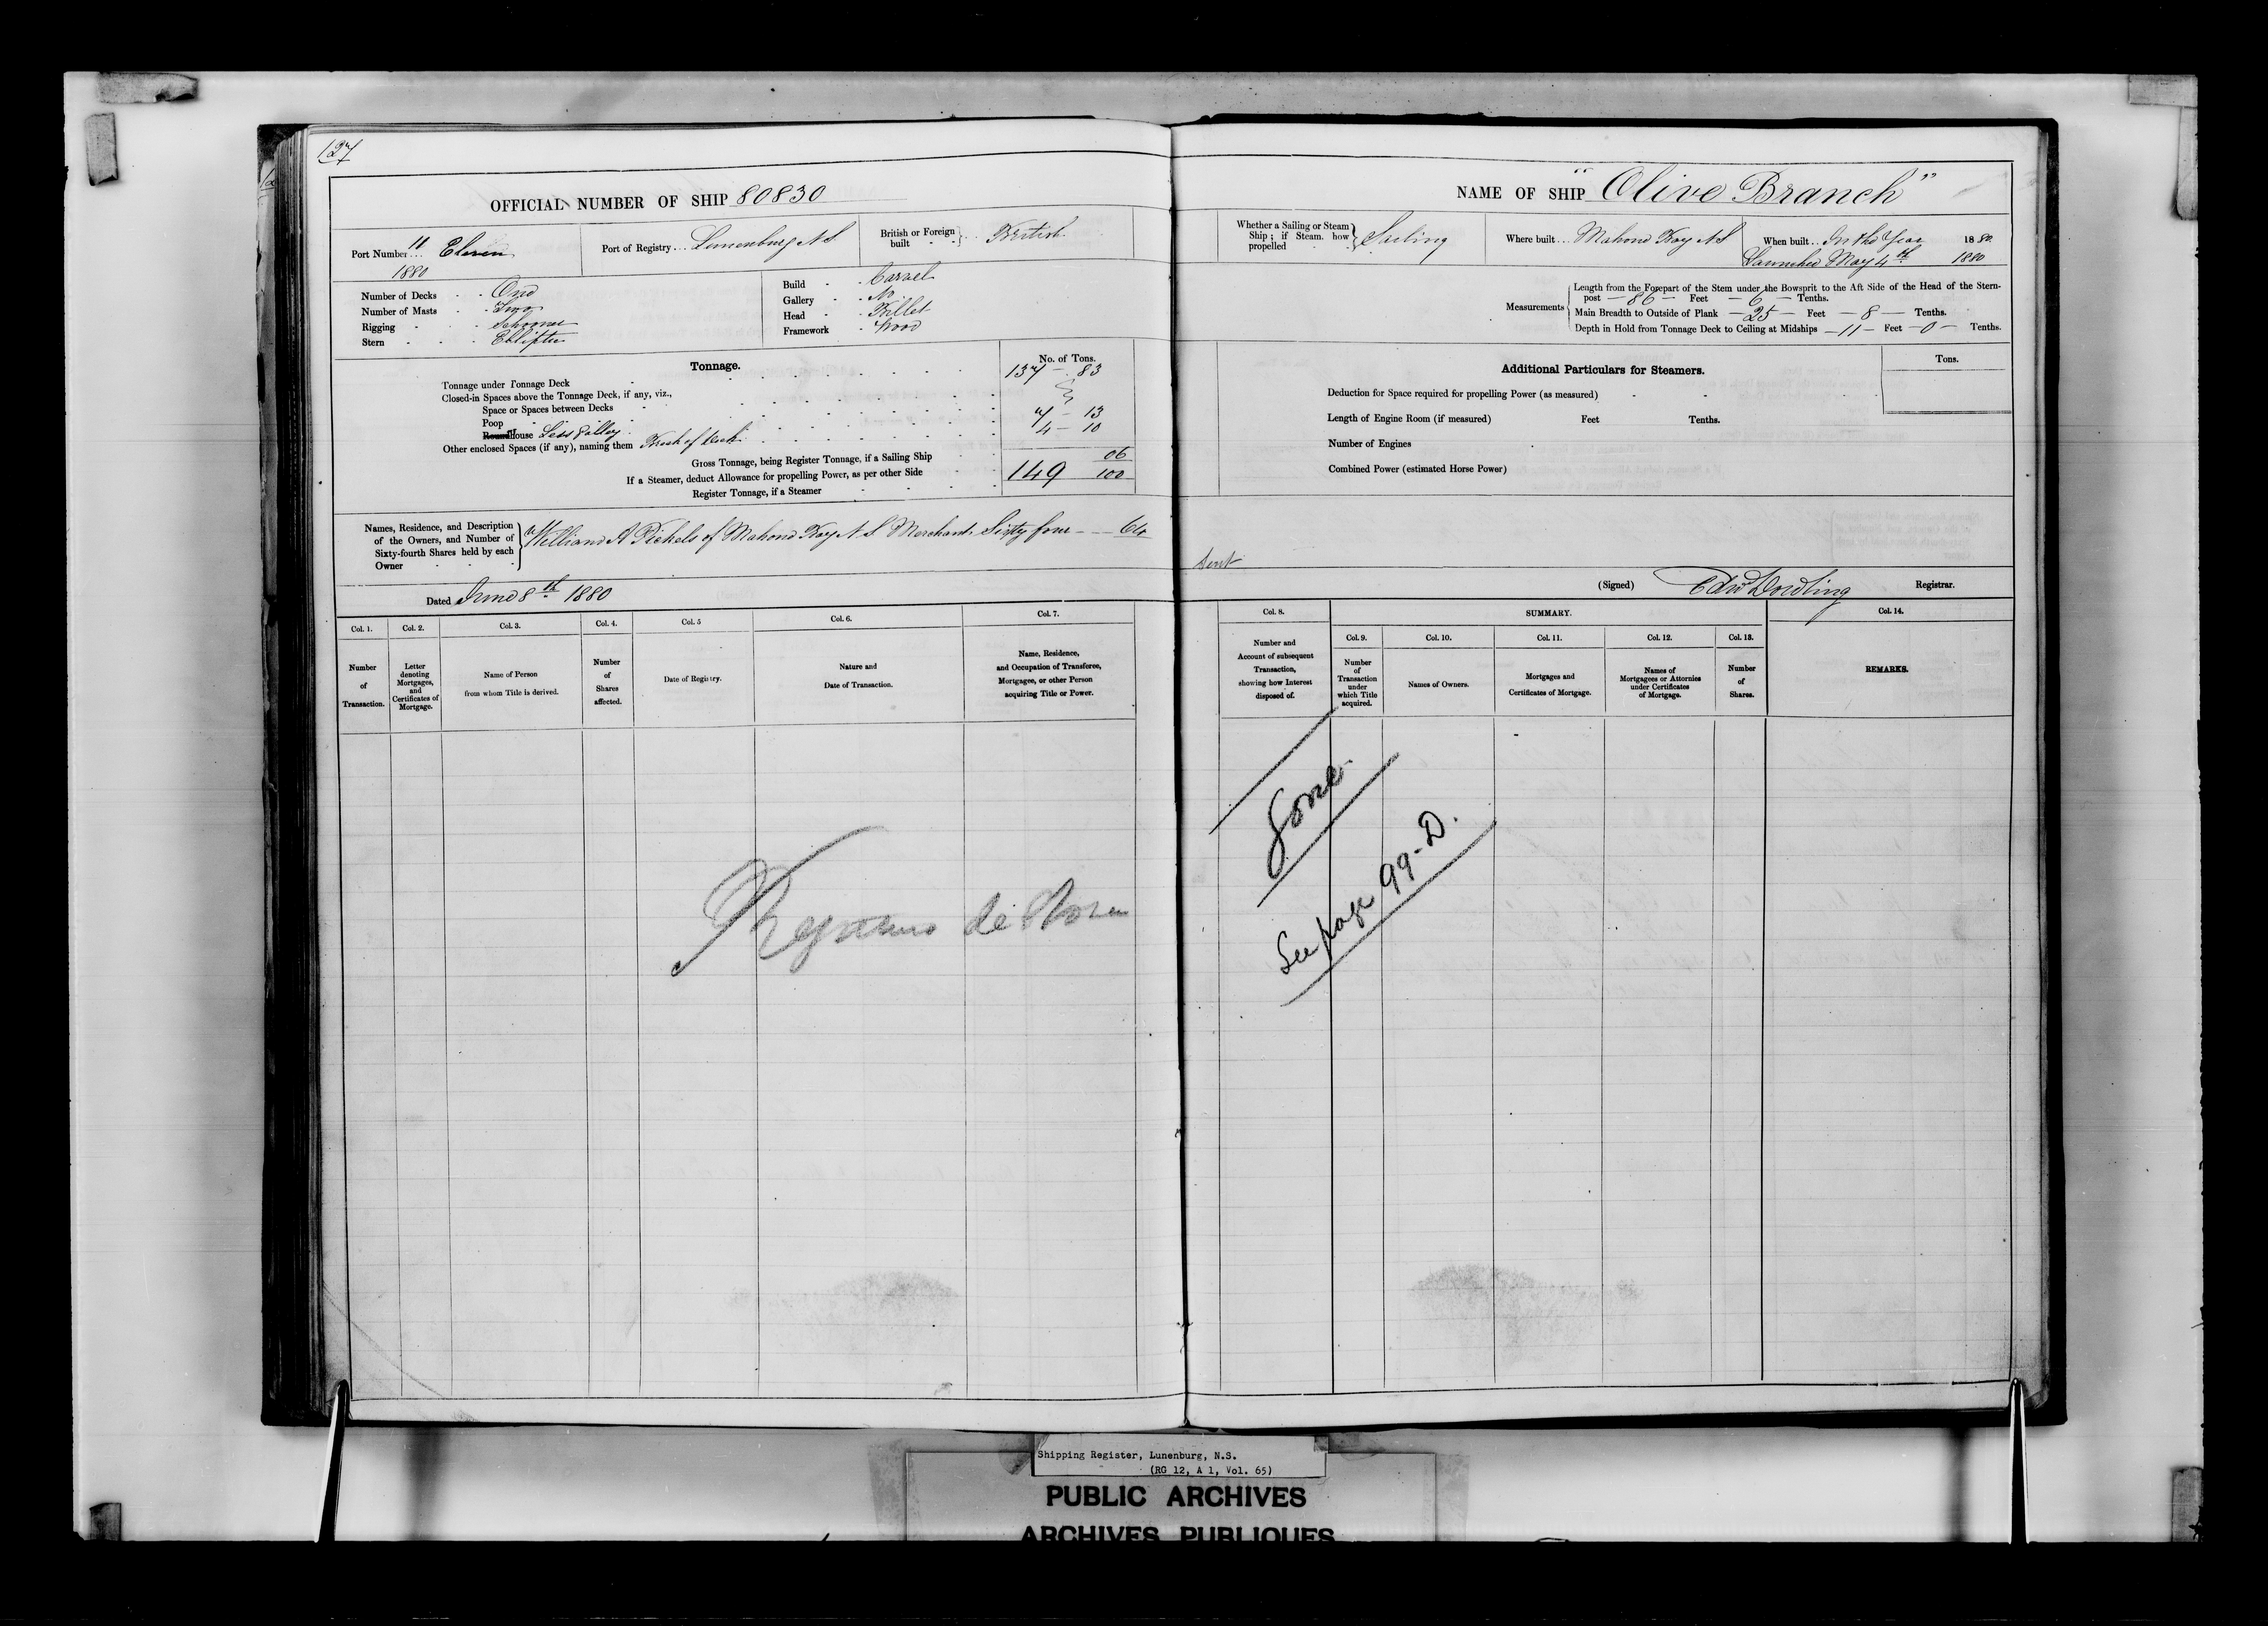 127
OFFICIAL NUMBER OF SHIP 80830
Port Number... 11 Eleven 1880
Port of Registry... Lunenburg N S
British or Foreign built British
Number of Decks One
Number of Masts Two
Rigging Schooner
Stern
Build Carvel
Gallery No
Head Billet
Framework Wood
Tonnage.
No. of Tons.
Tonnage under Tonnage Deck 137 - 83
Closed-in Spaces above the Tonnage Deck, if any, viz.,
Space or Spaces between Decks
Poop 7 - 13
House Less Galley 4 - 10
Other enclosed Spaces (if any), naming them Break of Deck
Gross Tonnage, being Register Tonnage, if a Sailing Ship 06
If a Steamer, deduct Allowance for propelling Power, as per other Side 149 100
Register Tonnage, if a Steamer
Names, Residence, and Description of the Owners, and Number of Sixty-fourth Shares held by each Owner
William A Pickels of Mahone Bay N S Merchant Sixty four - - 64
Dated June 8th 1880
Col. 1. Number of Transaction.
Col. 2. Letter denoting Mortgages, and Certificates of Mortgage.
Col. 3. Name of Person from whom Title is derived.
Col. 4. Number of Shares affected.
Col. 5 Date of Registry.
Col. 6. Nature and Date of Transaction.
Col. 7. Name, Residence, and Occupation of Transferee, Mortgagee, or other Person acquiring Title or Power.
NAME OF SHIP "Olive Branch"
Whether a Sailing or Steam Ship; if Steam. how propelled Sailing
Where built... Mahone Bay N S
When built.. In the Year 1880
Launched May 4th 1880
Measurements
Length from the Forepart of the Stem under the Bowsprit to the Aft Side of the Head of the Stern-
post — 86 — Feet — 6 — Tenths.
Main Breadth to Outside of Plank — 25 — Feet — 8 — Tenths.
Depth in Hold from Tonnage Deck to Ceiling at Midships — 11 — Feet — 0 — Tenths.
Additional Particulars for Steamers.
Tons.
Deduction for Space required for propelling Power (as measured)
Length of Engine Room (if measured) Feet Tenths.
Number of Engines
Combined Power (estimated Horse Power)
Sent
(Signed) Edw Dowling Registrar.
Col. 8. Number and Account of subsequent Transaction, showing how Interest disposed of.
SUMMARY.
Col. 9. Number of Transaction under which Title acquired.
Col. 10. Names of Owners.
Col. 11. Mortgages and Certificates of Mortgage.
Col. 12. Names of Mortgagees or Attornies under Certificates of Mortgage.
Col. 13. Number of Shares.
Col. 14. REMARKS.
Gone.
See page 99-D.
Shipping Register, Lunenburg, N.S.
(RG 12, A 1, Vol. 65)
PUBLIC ARCHIVES
ARCHIVES PUBLIQUES